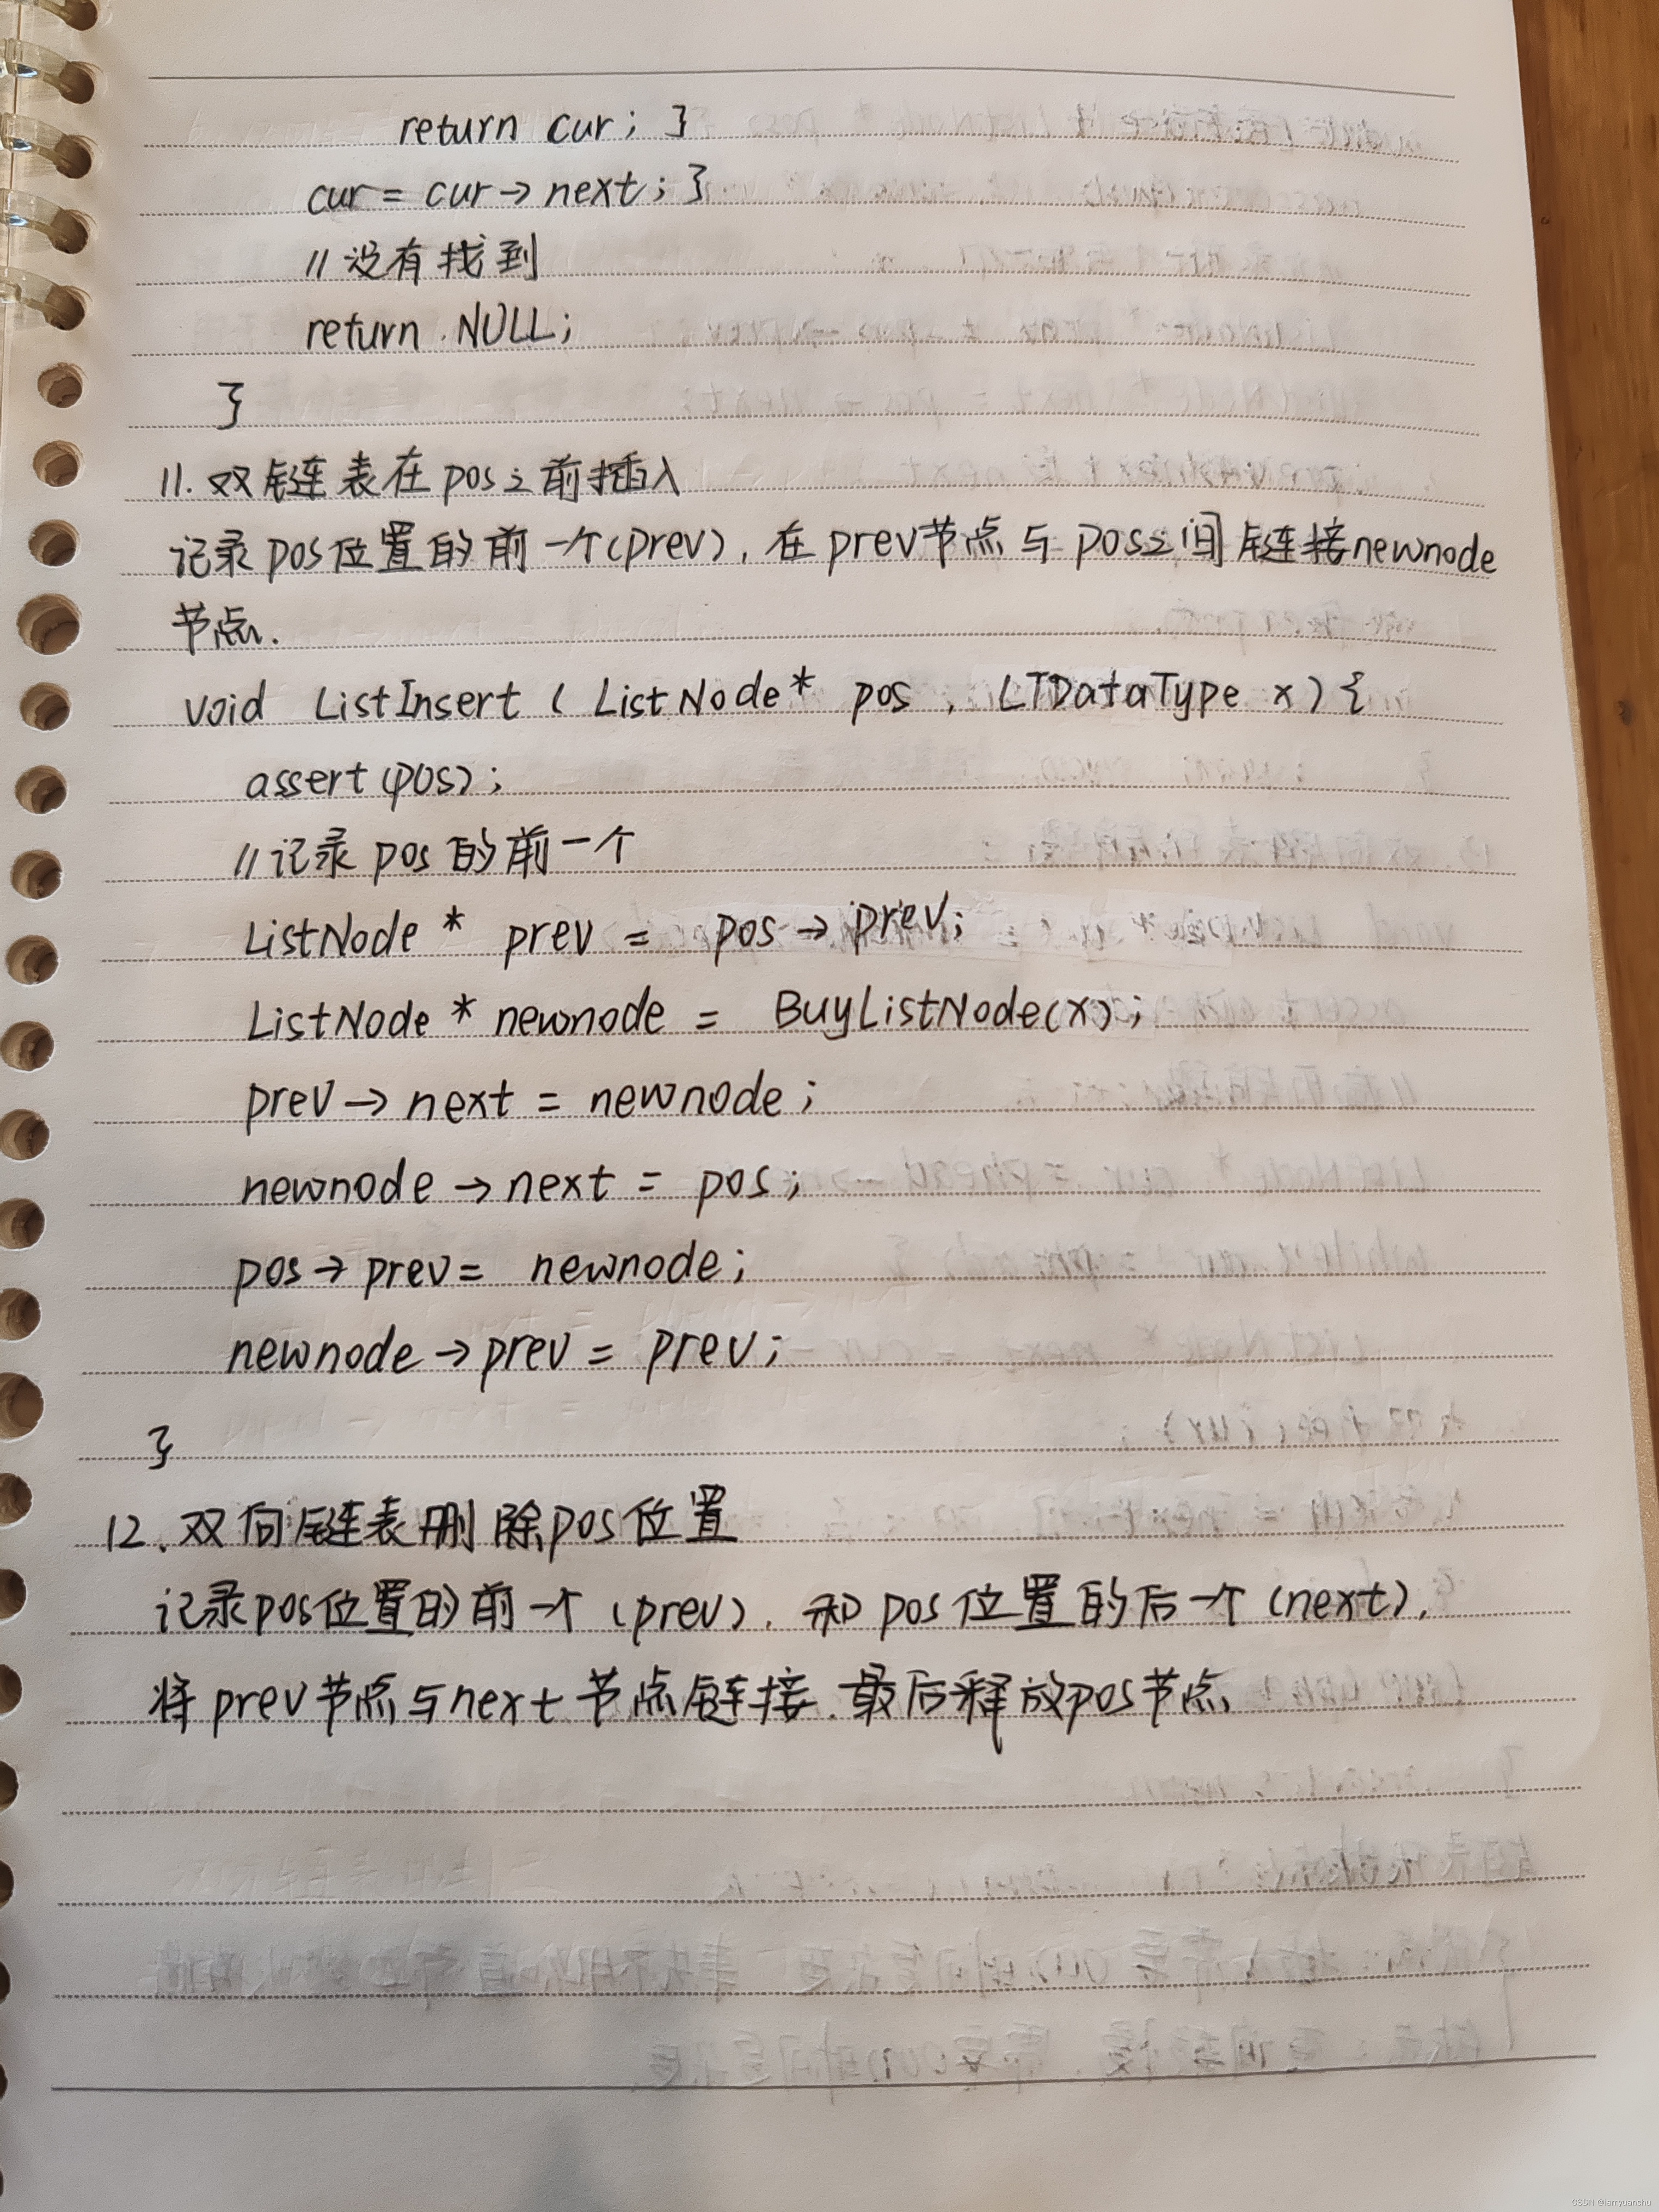 return cur; }
cur = cur → next; }
// 没有找到
return NULL;
}
11. 双链表在pos之前插入
记录pos位置的前一个(prev), 在prev节点与pos之间链接newnode
节点.
void ListInsert ( ListNode* pos , LTDataType x ) {
assert(pos);
// 记录 pos 的前一个
ListNode * prev = pos → prev;
ListNode * newnode = BuyListNode(x);
prev → next = newnode;
newnode → next = pos;
pos → prev = newnode;
newnode → prev = prev;
}
12. 双向链表删除pos位置
记录pos位置的前一个 (prev), 和 pos位置的后一个 (next),
将 prev节点与next节点链接. 最后释放pos节点.
CSDN @iamyuanchu